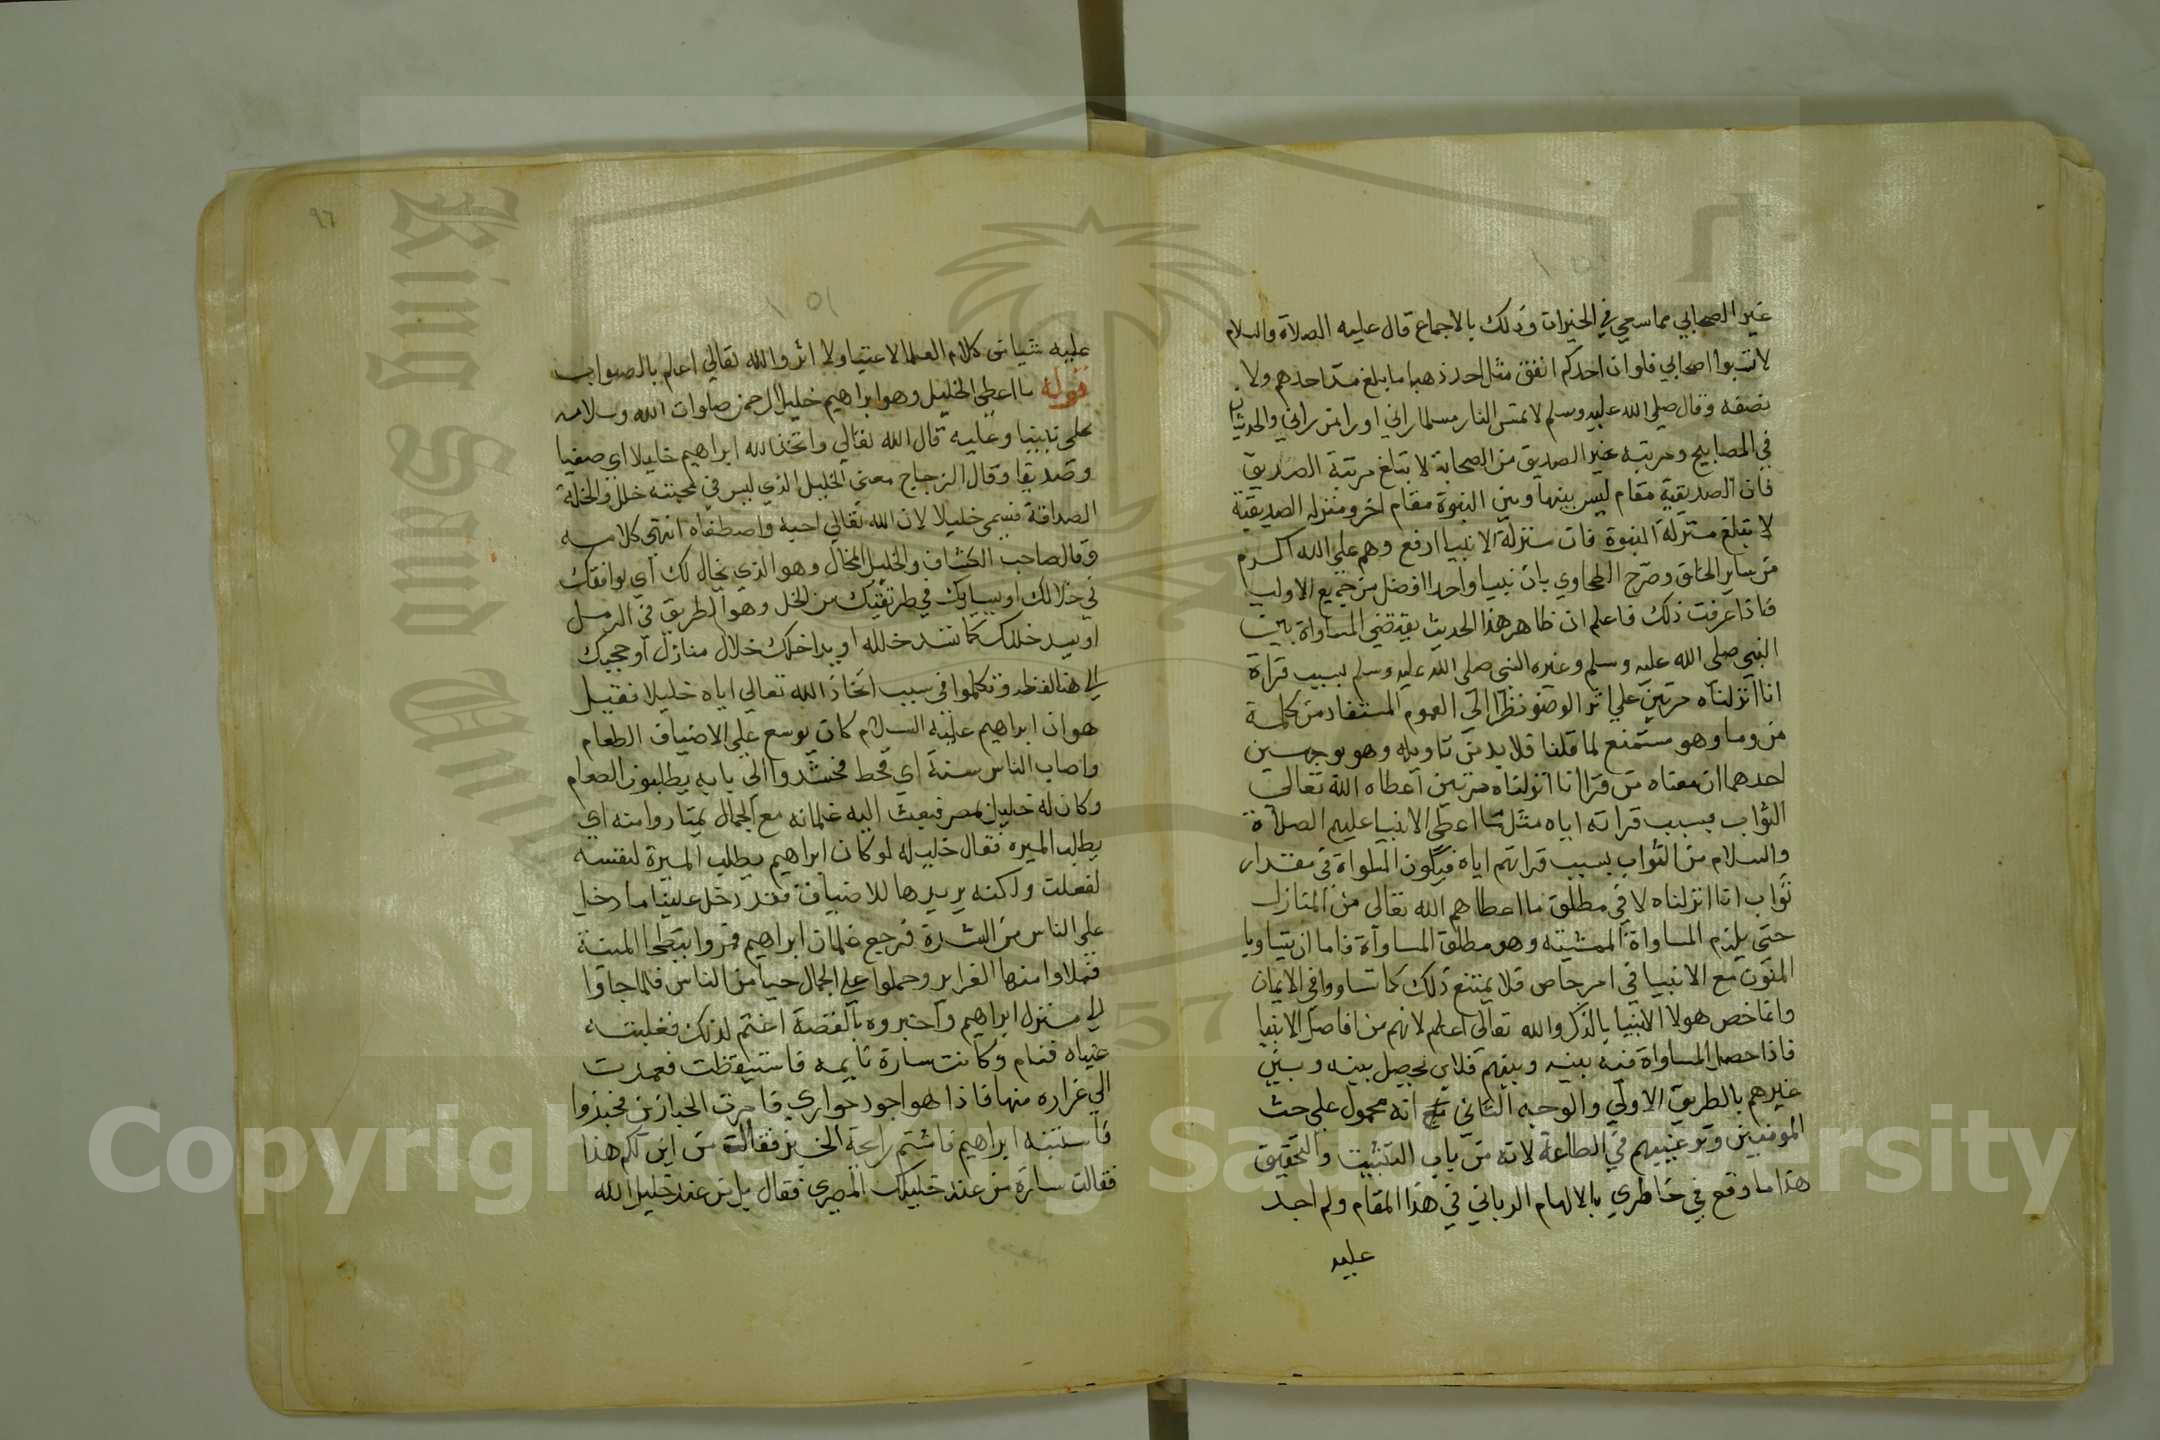 غير الصحابي مما سعي في الخيرات وذلك بالاجماع قال عليه الصلاة والسلام
لا تسبوا اصحابي فلو ان احدكم انفق مثل احد ذهبا ما بلغ مد احدهم ولا
نصفه وقال صلي الله عليه وسلم لا تمس النار مسلما راني او راي من راني والحديثان
في المصابيح ومرتبة غير الصديق من الصحابة لا تبلغ مرتبة الصديق
فان الصديقية مقام ليس بينها وبين النبوة مقام اخر ومنزلة الصديقية
لا تبلغ منزلة النبوة فان منزلة الانبيا ارفع وهم علي الله اكرم
من ساير الخلق وصرح الطحاوي بان نبيا واحدا افضل من جميع الاوليا
فاذا عرفت ذلك فاعلم ان ظاهر هذا الحديث يقتضي المساواة بين
النبي صلي الله عليه وسلم وغيره النبي صلي الله عليه وسلم بسبب قراة
انا انزلناه مرتين علي اثر الوضو نظرا الي العموم المستفاد من كلمة
من وما وهو مستمنع لما قلنا فلا بد من تاويله وهو بوجهين
احدهما ان معناه من قرا انا انزلناه مرتين اعطاه الله تعالي
الثواب بسبب قراته اياه مثل ما اعطي الانبيا عليهم الصلاة
والسلام من الثواب بسبب قراتهم اياه فيكون المساواة في مقدار
ثواب انا انزلناه لا في مطلق ما اعطاهم الله تعالي من المنازل
حتي يلزم المساواة الممشيته وهو مطلق المساوآة فاما ان يتساويا
المنون مع الانبيا في امر خاص فلا يمتنع ذلك كما تساووا في الايمان
وانما خص هولا الانبيا بالذكر والله تعالي اعلم لانهم من افاضل الانبيا
فاذا حصل المساواة فيه بينه وبينهم فلان يحصل بينه وبين
غيرهم بالطريق الاولي والوجه الثاني انه محمول علي حث
المومنين وترغيبهم في الطاعة لانه من باب التثبيت والتحقيق
هذا ما وقع في خاطري بالالهام الرباني في هذا المقام ولم اجد
عليه
٩٦
عليه شيا من كلام العلما لا عتيا ولا اثر والله تعالي اعلم بالصواب
قوله ما اعطي الخليل وهو ابراهيم خليل الرحمن صلوات الله وسلامه
علي نبينا وعليه قال الله تعالي واتخذ الله ابراهيم خليلا اي صفيا
وصديقا وقال الزجاج معني الخليل الذي ليس في محبته خلل والخلة
الصداقة فسمي خليلا لان الله تعالي احبه واصطفاه انتهي كلامه
وقال صاحب الكشاف والخليل المخال وهو الذي يخال لك اي يوافقك
في خلالك او يسايرك في طريقتك من الخل وهو الطريق في الرمل
او يسد خللك كما تسد خلله او يداخلك خلال منازل او حجبك
الي هنا لفظه وتكلموا في سبب اتخاذ الله تعالي اياه خليلا فقيل
هو ان ابراهيم عليه السلام كان يوسع علي الاضياف الطعام
واصاب الناس سنة اي قحط فحشدوا الي بابه يطلبون الطعام
وكان له خليل بمصر فبعث اليه غلمانه مع الجمال يمتاروا منه اي
يطلب الميرة فقال خليله لو كان ابراهيم يطلب الميرة لنفسه
لفعلت ولكنه يريدها للاضياف فقد دخل علينا ما دخل
علي الناس من الشدة فرجع غلمان ابراهيم فمروا ببطحا المينة
فملاوا منها الغراير وحملوا علي الجمال حيا من الناس فلما جاوا
الي منزل ابراهيم واخبروه بالقصة اغتم لذلك فغلبته
عيناه فنام وكانت سارة نايمه فاستيقظت فعمدت
الي غراره منها فاذا هو اجود حواري فامرت الخبازين فخبزوا
فاستنبه ابراهيم فاشتم رائحة الخبز فقالت من اين لكم هذا
فقالت سارة من عند خليلك المصري فقال بل من عند خليل الله
Copyright © King Saud University
King Saud University
1957